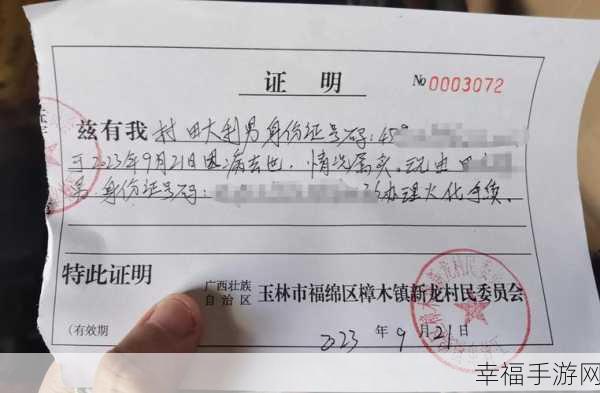 证 明 No 0003072
兹有我村田大利男身份证号码:45
于2023年9月21日因病去世,情况属实,现由田
男,身份证号码: 办理火化手续。
特此证明
广西壮族自治区 玉林市福绵区樟木镇新龙村民委员会
(有效期
2023 年 9 月 21 日
幸福手游网